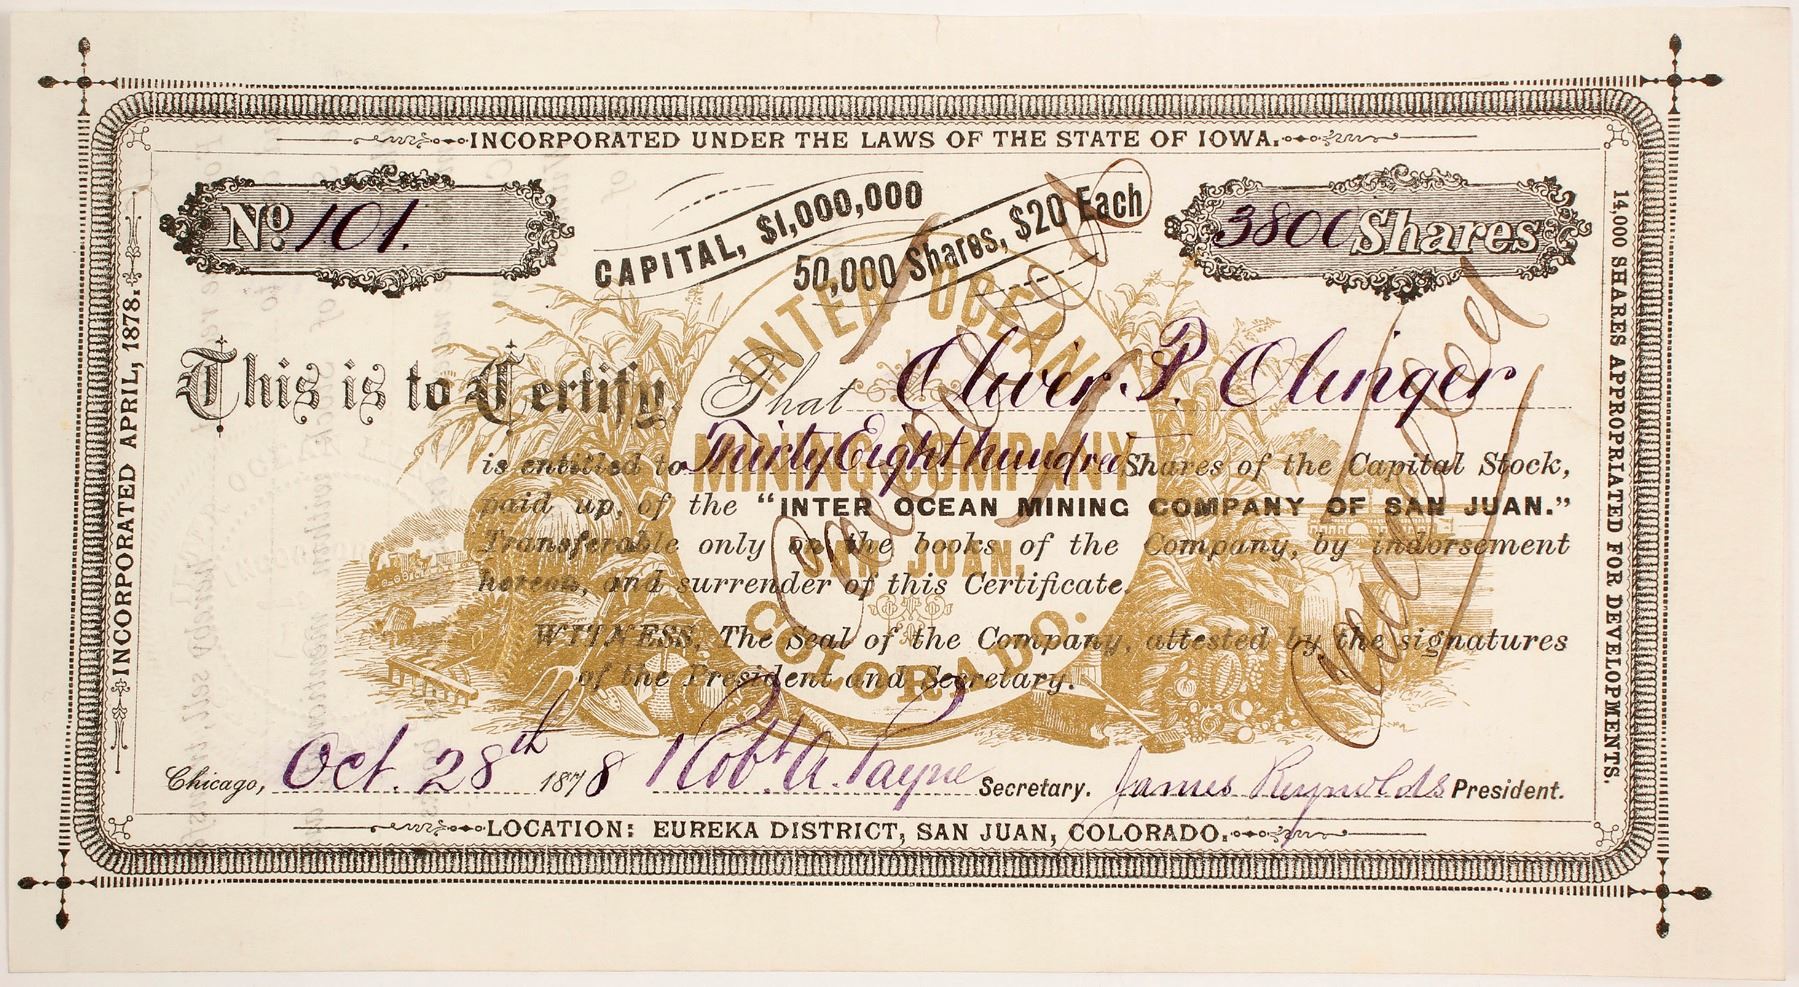 INCORPORATED UNDER THE LAWS OF THE STATE OF IOWA.
No. 101.
CAPITAL, $1,000,000
50,000 Shares, $20 Each
3800 Shares
INTER OCEAN
MINING COMPANY
SAN JUAN,
COLORADO.
This is to Certify, That Oliver P. Olinger
is entitled to Thirty Eight hundred Shares of the Capital Stock,
paid up, of the "INTER OCEAN MINING COMPANY OF SAN JUAN."
Transferable only on the books of the Company, by indorsement
hereon, and surrender of this Certificate.
WITNESS, The Seal of the Company, attested by the signatures
of the President and Secretary.
Cancelled
Cancelled
Chicago, Oct. 28th 1878 Robt. A. Payne Secretary. James Reynolds President.
LOCATION: EUREKA DISTRICT, SAN JUAN, COLORADO.
INCORPORATED APRIL, 1878.
14,000 SHARES APPROPRIATED FOR DEVELOPMENTS.